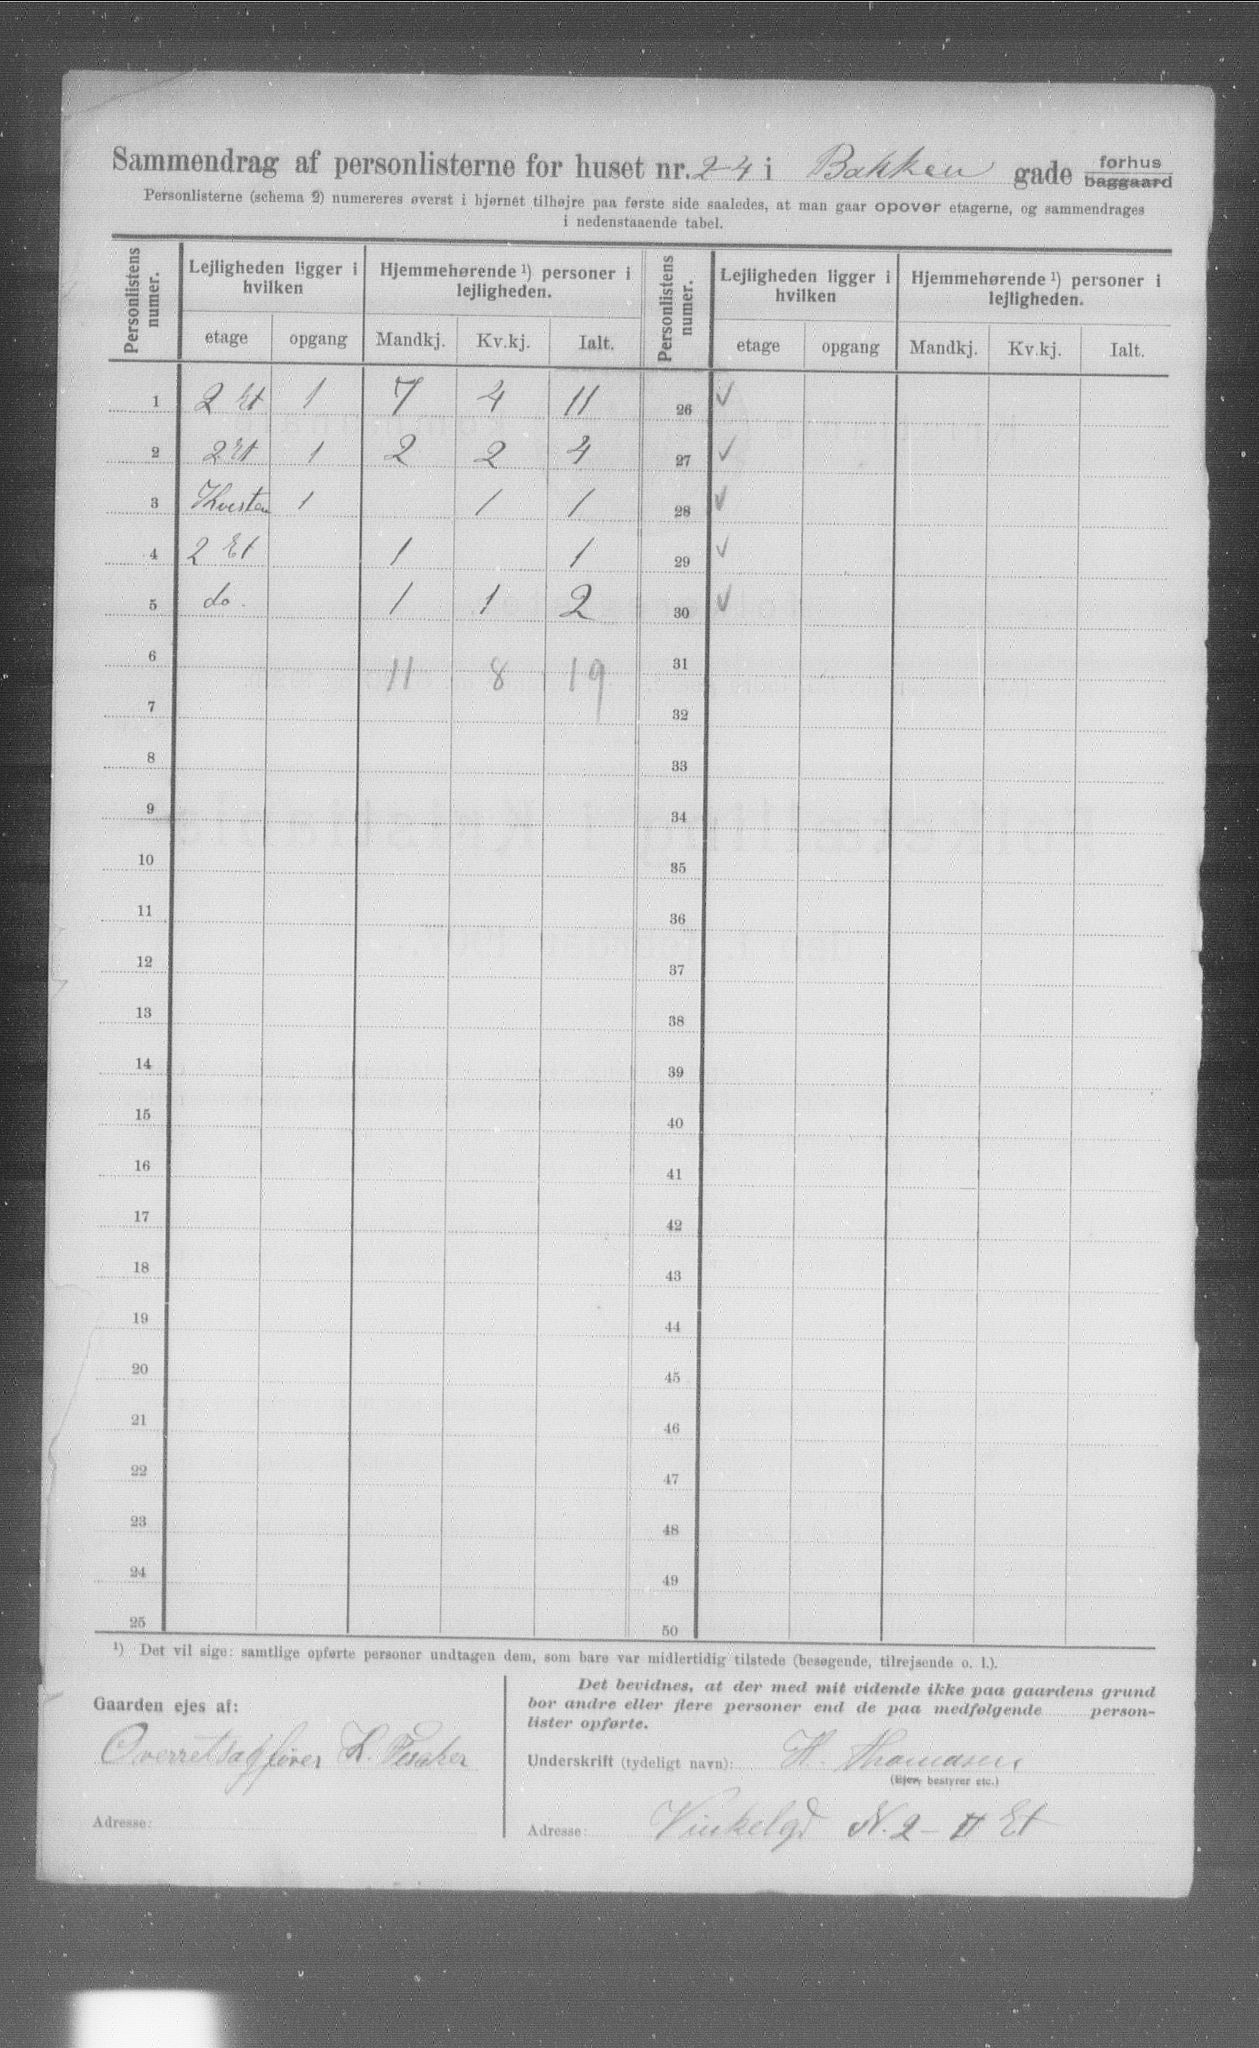 Sammendrag af personlisterne for huset nr. 24 i Bakken gade forhus baggaard
Personlisterne (schema 2) numereres øverst i hjørnet tilhøjre paa første side saaledes, at man gaar opover etagerne, og sammendrages
i nedenstaaende tabel.
Personlistens numer. Lejligheden ligger i hvilken Hjemmehørende ¹) personer i lejligheden. Personlistens numer. Lejligheden ligger i hvilken Hjemmehørende ¹) personer i lejligheden.
etage opgang Mandkj. Kv.kj. Ialt. etage opgang Mandkj. Kv.kj. Ialt.
1 2 Et 1 7 4 11 26 ✓
2 2 Et 1 2 2 4 27 ✓
3 Kvisten 1 1 1 28 ✓
4 2 Et 1 1 29 ✓
5 do. 1 1 2 30 ✓
6 11 8 19 31
7 32
8 33
9 34
10 35
11 36
12 37
13 38
14 39
15 40
16 41
17 42
18 43
19 44
20 45
21 46
22 47
23 48
24 49
25 50
¹) Det vil sige: samtlige opførte personer undtagen dem, som bare var midlertidig tilstede (besøgende, tilrejsende o. l.).
Gaarden ejes af:
Overretssagfører
Adresse:
Det bevidnes, at der med mit vidende ikke paa gaardens grund
bor andre eller flere personer end de paa medfølgende person-
lister opførte.
Underskrift (tydeligt navn): H. Thomasen
(Ejer, bestyrer etc.)
Adresse: Vinkelgd N. 2 - II Et